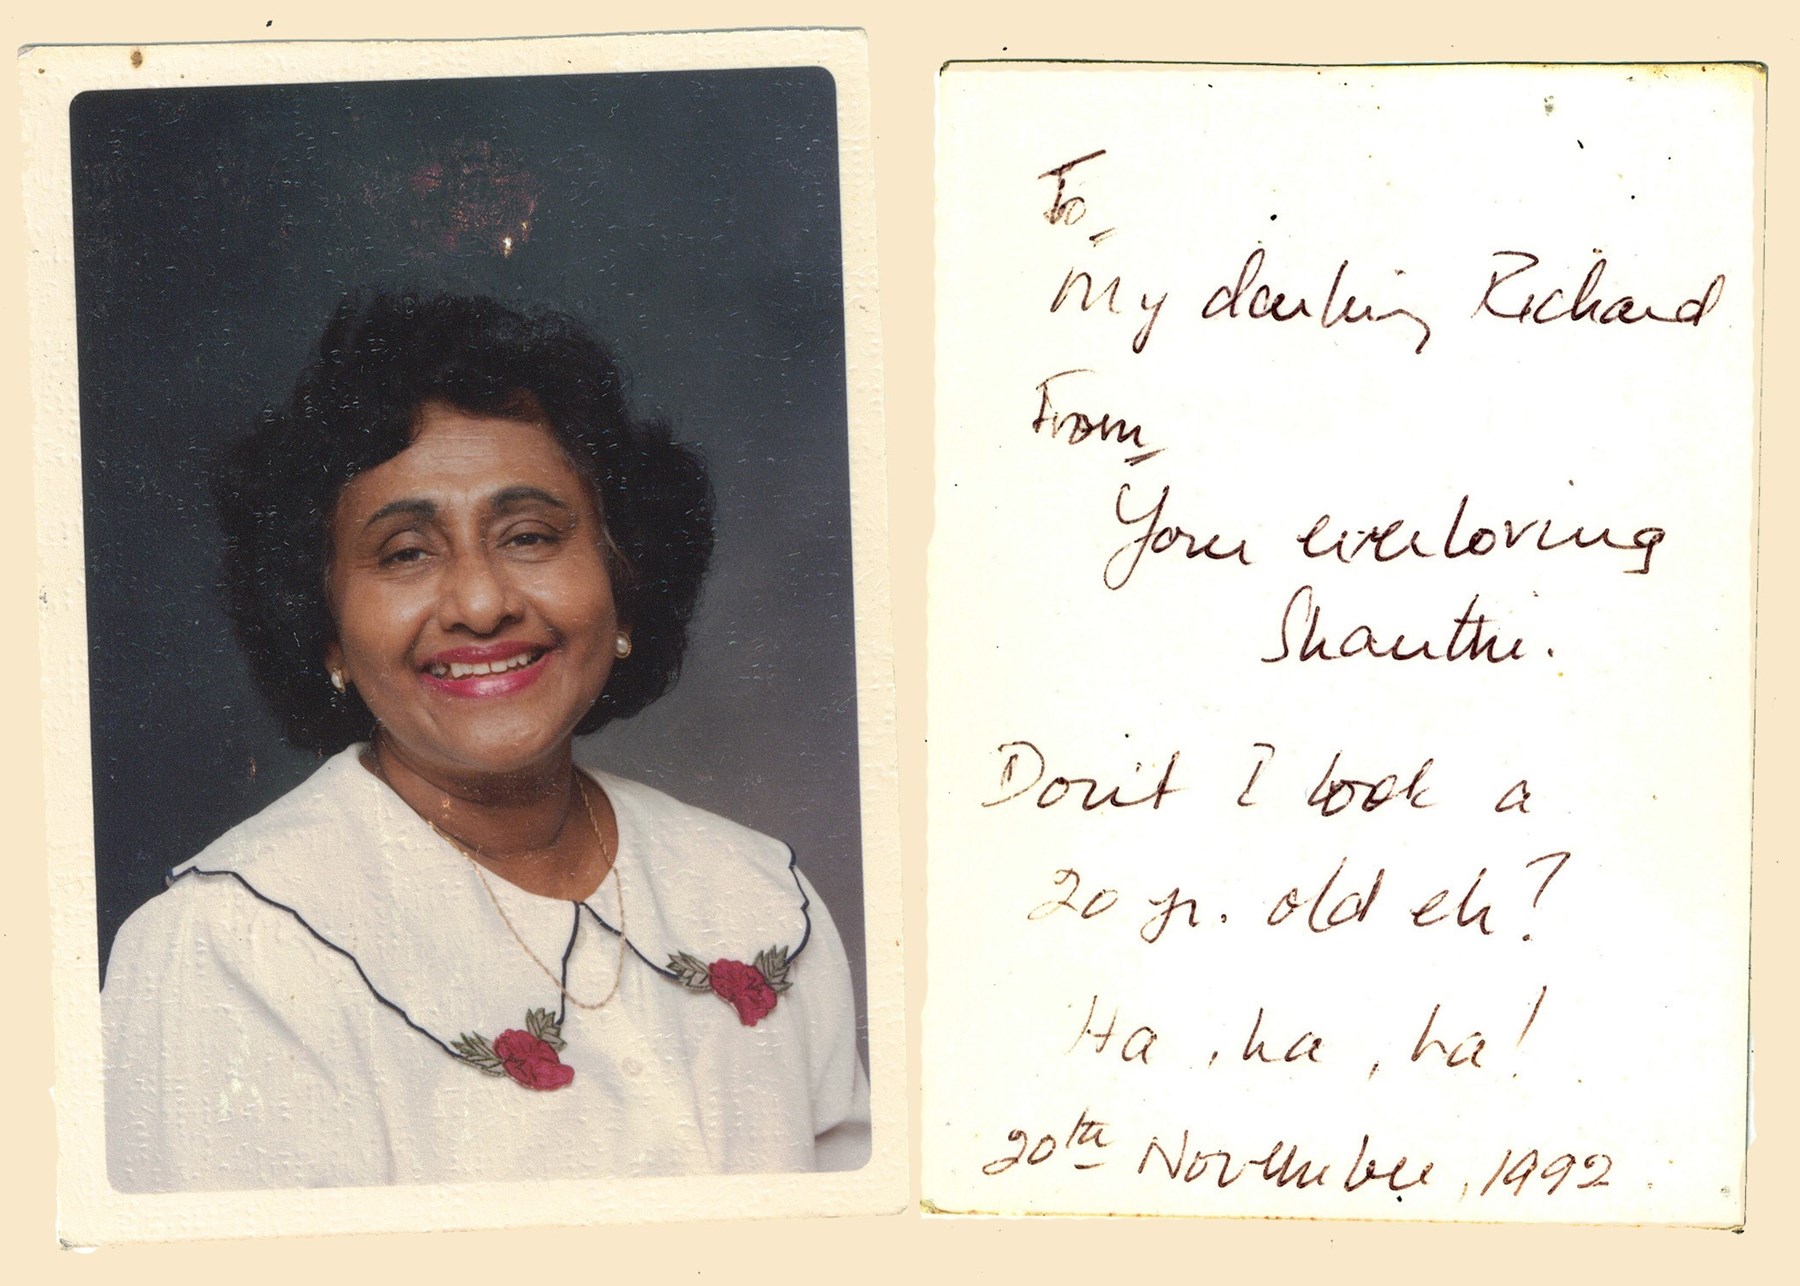 To,
My darling Richard
From,
Your everloving
Shanthi.
Don't I look a
20 yr. old eh?
Ha, ha, ha!
20th November, 1992.